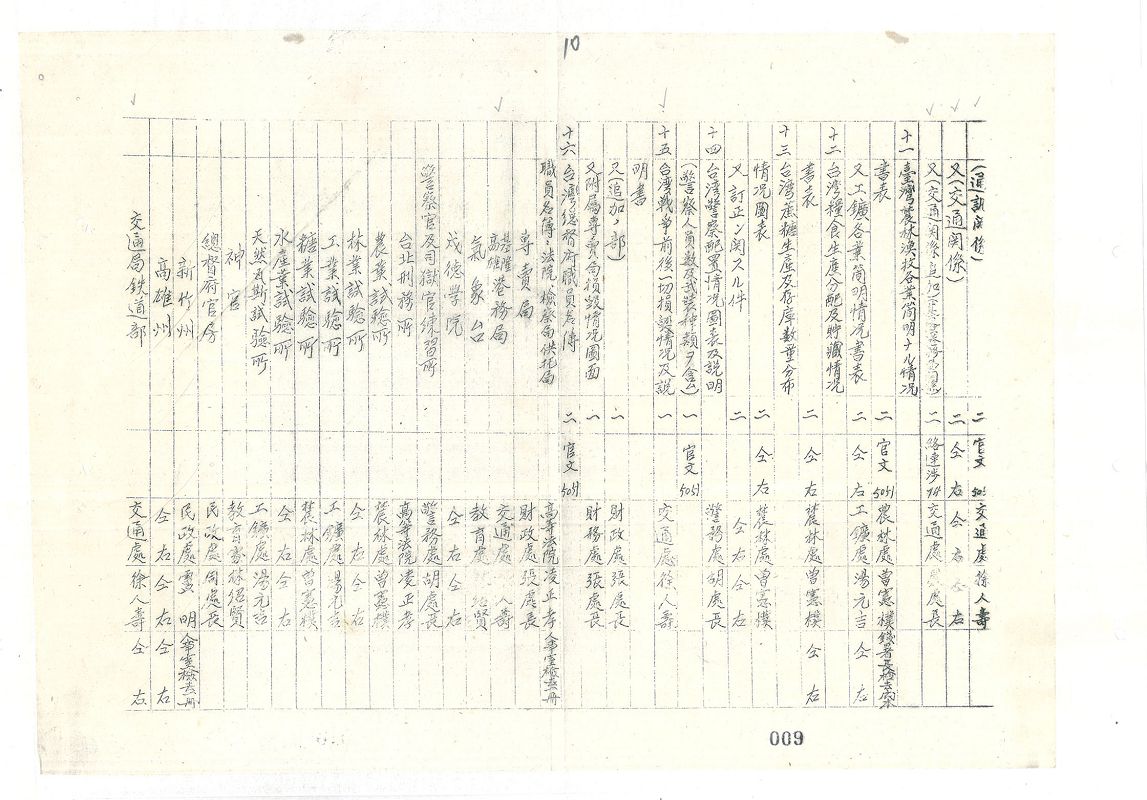 10
(通訊関係) 二 官文 505 交通處 徐人壽
又(交通関係) 二 仝右 仝右 仝右
又(交通関係追加 二 交通處 處長
十一 臺灣農林漁牧各業簡明ナル情況
書表 二 官文 5051 農林處 曽憲樸
又工鑛各業簡明情況書表 二 仝右 工鑛處 湯元吉 仝右
十二 台湾糧食生産分配及貯藏情況
書表 二 仝右 農林處 曽憲樸 仝右
十三 台湾蔗糖生産及存庫数量分布
情況圖表 二 仝右 農林處 曽憲樸
又訂正ニ関スル件 二 仝右 仝右
十四 台湾警察配置情況圖表及説明
(警察人員数及武裝種類ヲ含ム) 一 官文 5051 警務處 胡處長
十五 台湾戦争前後一切損毀情況及説 一 交通處 徐人壽
明書
又(追加ノ部) 一 財政處 張處長
又附属専賣局損毀情況圖面 一 財務處 張處長
十六 台湾總督府職員名簿 二 官文 5051
職員名簿、法院、檢察局供託局 高等法院 凌正孝
専賣局 財政處 張處長
基隆高雄港務局 交通處 人壽
氣象台 教育處 賢
成徳學院 仝右 仝右
警察官及司獄官練習所 警務處 胡處長
台北刑務所 高等法院 凌正孝
農業試驗所 農林處 曽憲樸
林業試驗所 仝右 仝右
工業試驗所 工鑛處 湯元吉
糖業試驗所 農林處 曽憲樸
水産業試驗所 仝右 仝右
天然瓦斯試驗所 工鑛處 湯元吉
神宮 教育處 賢
總督府官房 民政處 周處長
新竹州 民政處 明
高雄州 仝右 仝右 仝右
交通局鉄道部 交通處 徐人壽 仝右
009